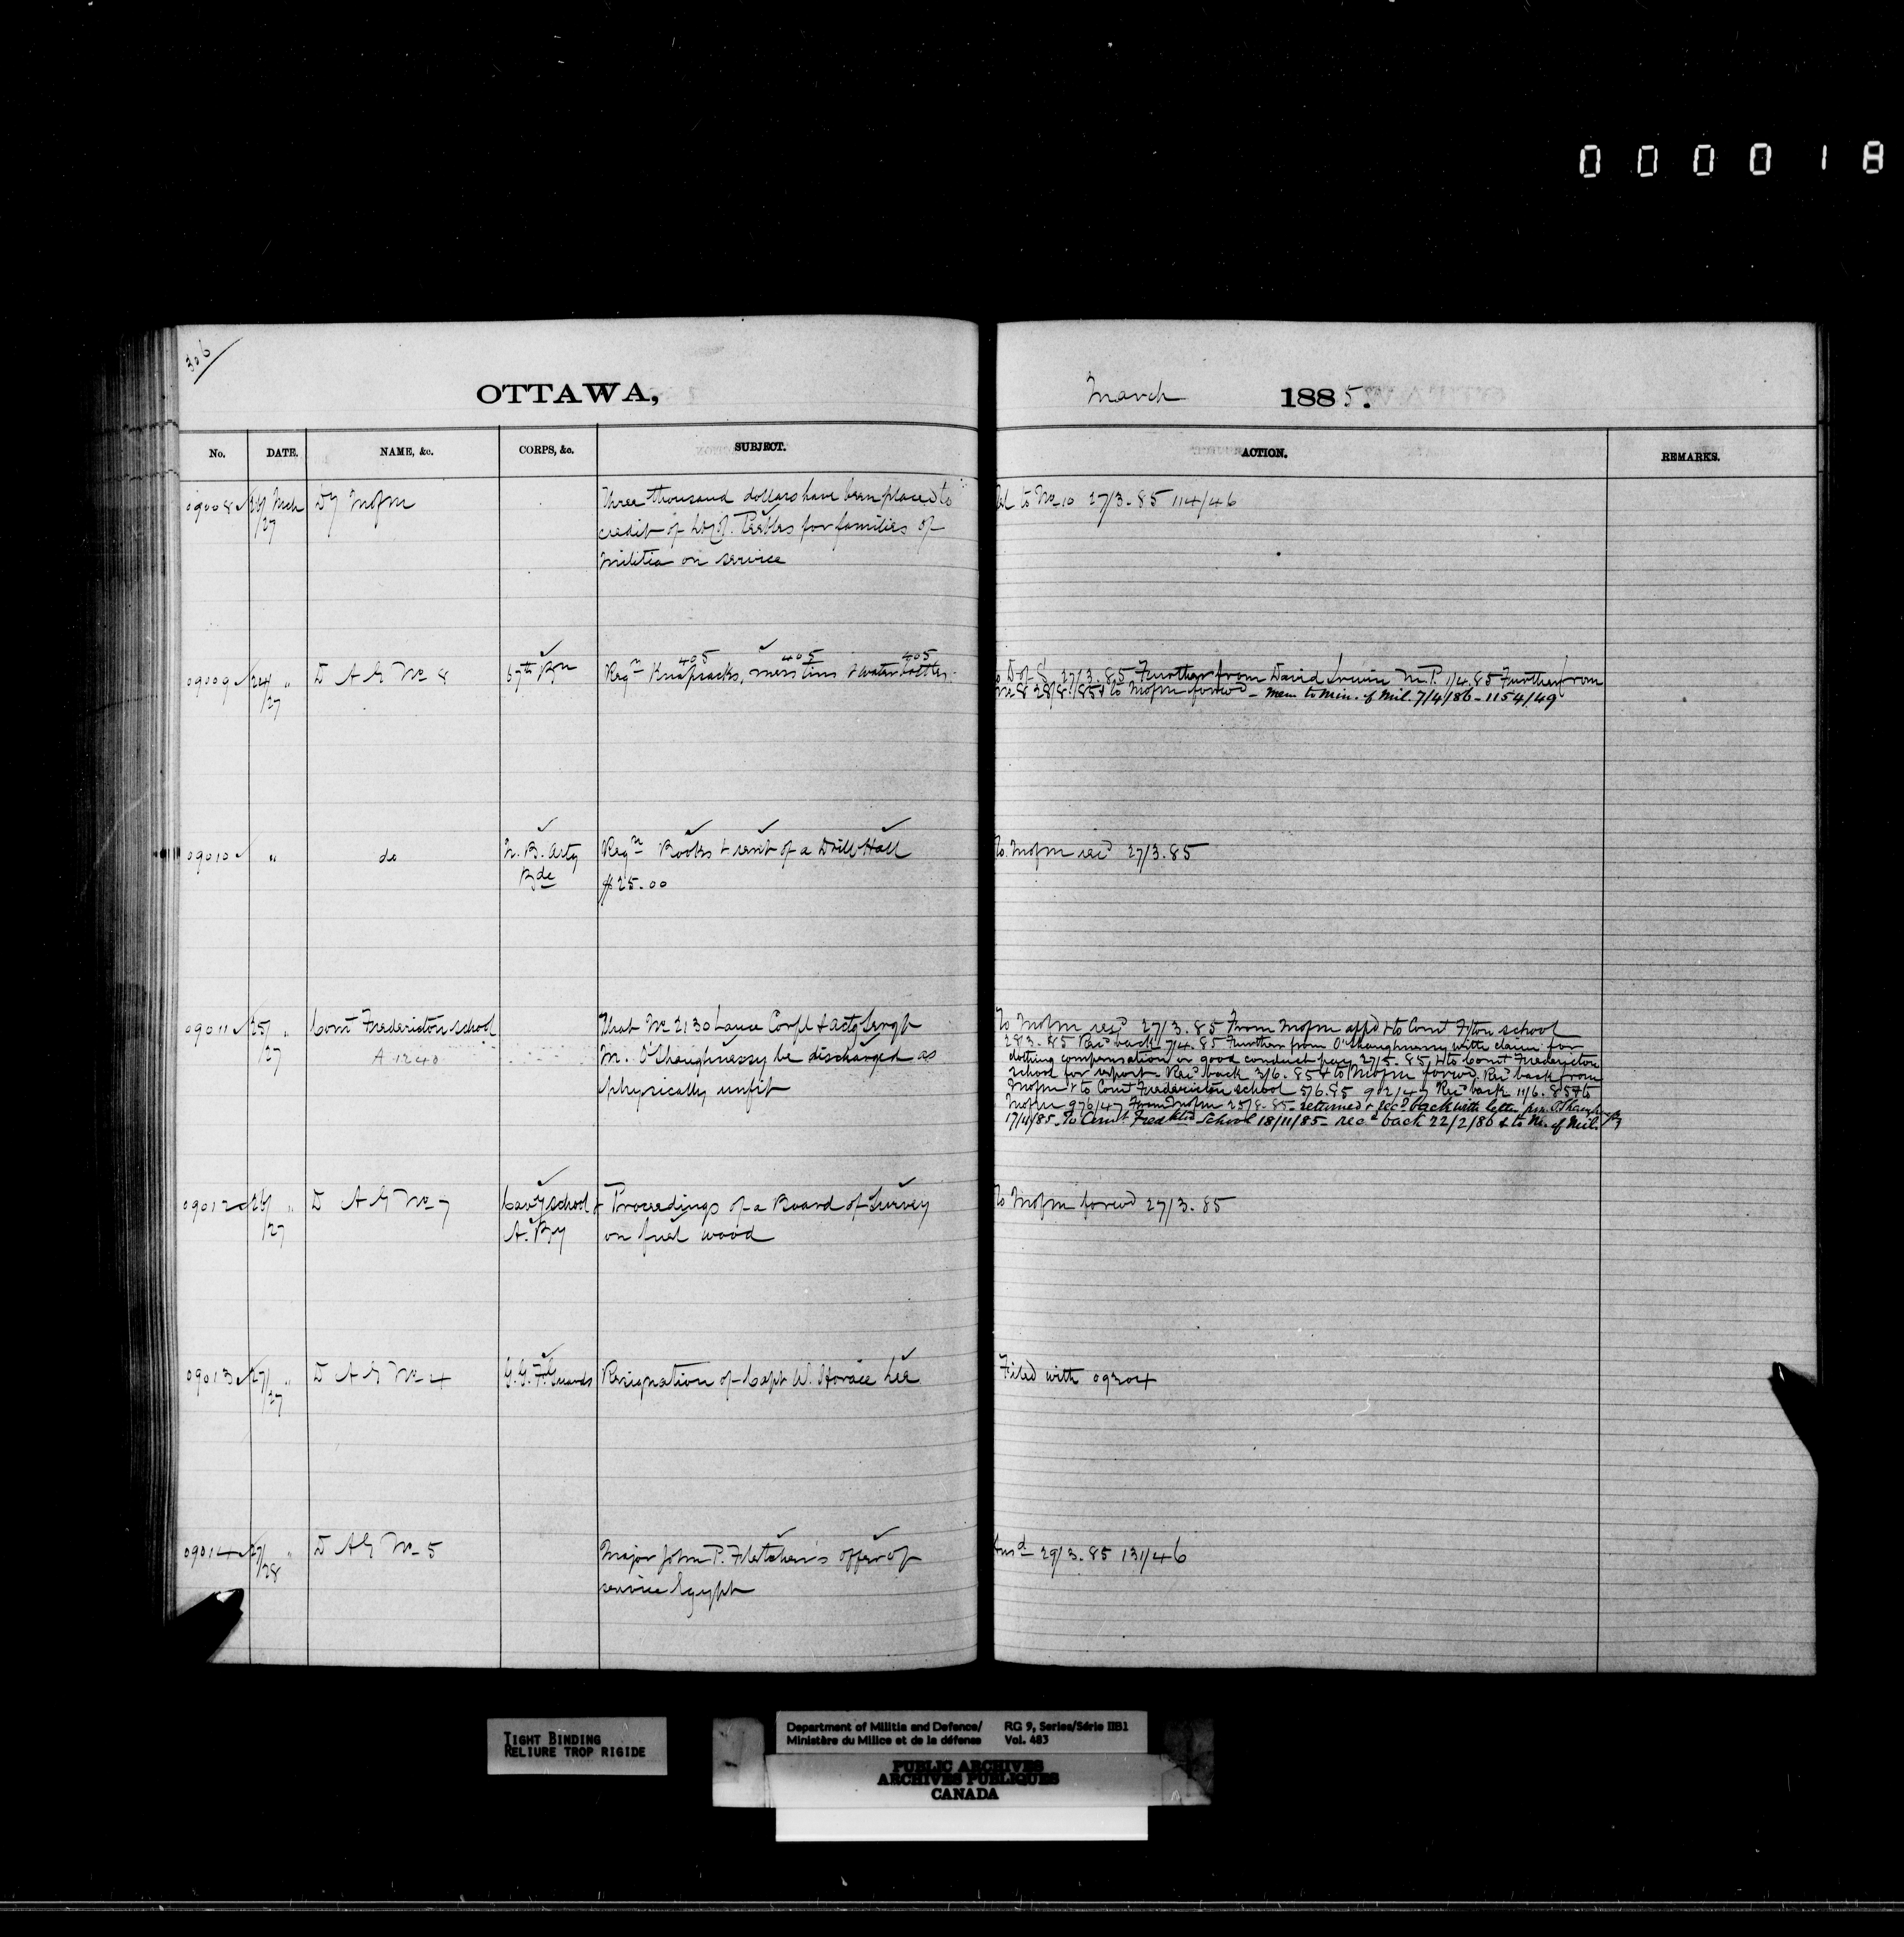 000018
306
OTTAWA,
March 1885.
No. DATE. NAME, &c. CORPS, &c. SUBJECT. ACTION. REMARKS.
09008 26/27 Mch Dy MofM Three thousand dollars have been placed to
credit of Lt Col. Peebles for families of
Militia on service
to No 10 27/3.85 114/46
09009 24/27 " D A G No 8 67th Bn Reqn Knapsacks, mess tins & water bottles.
405 405 405
D of S. 27/3.85 Further from David Irvine M.P. 1/4.85 Further from
No 8 28/8/85 & to MofM forwd - Mem to Min. of Mil. 7/4/86 - 1154/49
09010 " do N.B. Arty Reqn Books & rent of a Drill Hall
Bde $25.00
To MofM recd 27/3.85
09011 25/27 " Comt Fredericton school That No 2130 Lance Corpl & actg Sergt
A 1240 M. O'Shaughnessy be discharged as
physically unfit
To MofM recd 27/3.85 From MofM appd & to Comt F'ton school
28 3.85 Recd back 7/4.85 Further from O'Shaughnessy with claim for
clothing compensation or good conduct pay 27/5.85 & to Comt Fredericton
school for report - Recd back 3/6.85 & to MofM forwd. Recd back from
MofM & to Comt Fredericton school 5/6.85 902/47 Recd back 11/6.85 & to
MofM 976/47 From MofM 25/8.85 - returned & recd back with letter from O'Shaughnessy
17/11/85. To Comdt Fredkton School 18/11/85 - recd back 22/2/86 & to M. of Mil.
09012 26/27 " D A G No 7 Cavy school & Proceedings of a Board of Survey
A. By on fuel wood
To MofM forwd 27/3.85
09013 27/27 " D A G No 4 G.G.F. Guards Resignation of Capt W. Horace Lee
Filed with 09304
09014 27/28 " D A G No 5 Major John P. Fletcher's offer of
service Egypt
Ansd 29/3.85 131/46
TIGHT BINDING
RELIURE TROP RIGIDE
Department of Militia and Defence/ RG 9, Series/Série IIB1
Ministère du Milice et de la défense Vol. 483
PUBLIC ARCHIVES
ARCHIVES PUBLIQUES
CANADA